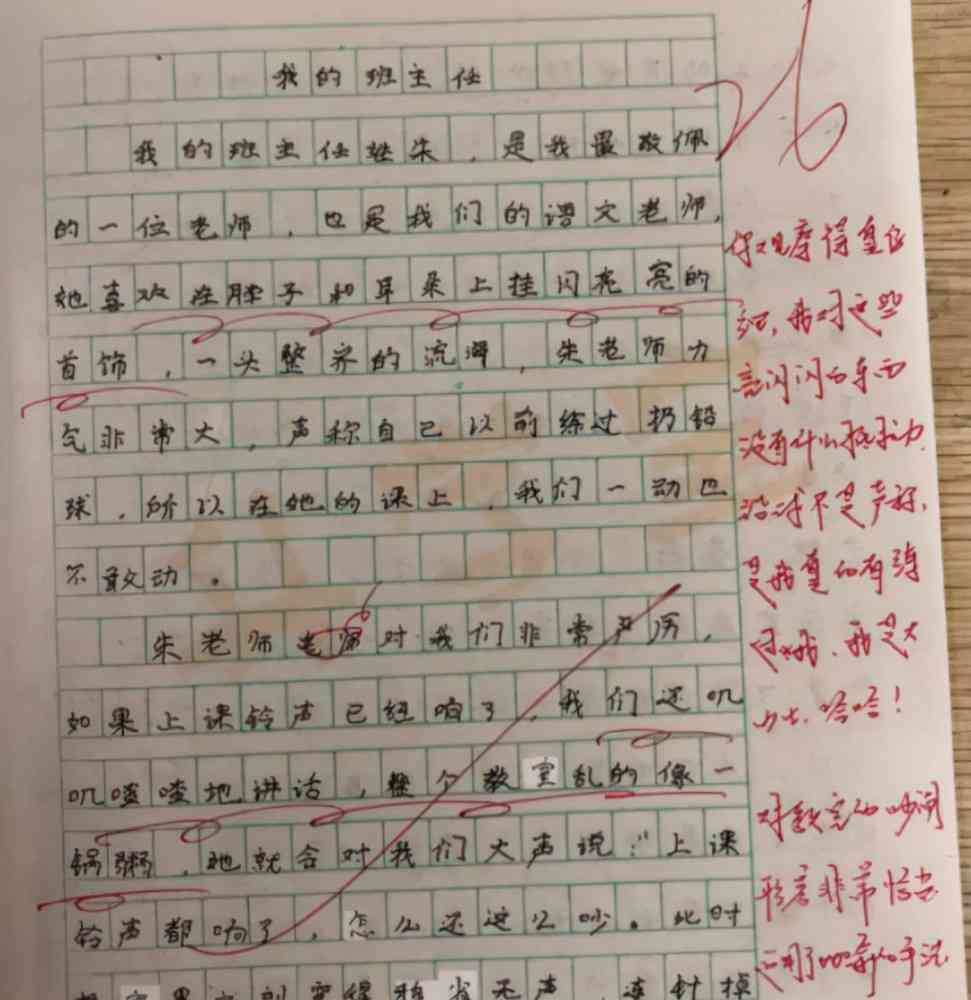 我的班主任
26
我的班主任姓朱,是我最敬佩
的一位老师,也是我们的语文老师,
她喜欢在脖子和耳朵上挂闪亮亮的
首饰,一头整齐的流海,朱老师力
气非常大,声称自己以前练过扔铅
球,所以在她的课上,我们一动也
不敢动。
朱老师老师对我们非常严厉,
如果上课铃声已经响了,我们还叽
叽喳喳地讲话,整个教室乱的像一
锅粥,她就会对我们大声说:“上课
铃声都响了,怎么还这么吵。此时
教室里立刻变得鸦雀无声,连针掉
你观察得真仔
细,我对这些
亮闪闪的东西
没有什么抵抗力.
没错不是声称,
是我真的有练
过哦,我是大
力士,哈哈!
对教室的吵闹
形容非常恰当
运用了比喻的手法